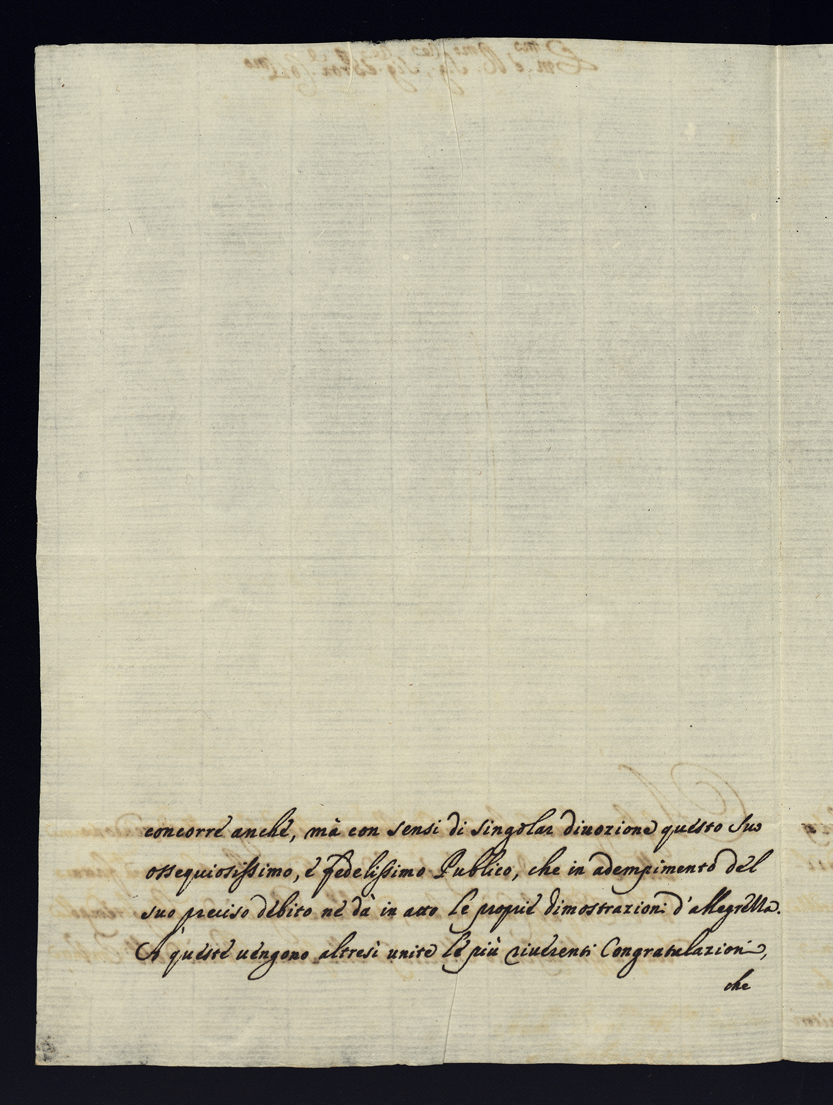 concorre anche, mà con sensi di singolar divozione questo Suo
ossequiosissimo, è fedelissimo Publico, che in adempimento del
suo preciso debito ne dà in atto le proprie dimostrazioni d'allegrezza.
A queste uengono altresì unite le più riuerenti Congratulazioni,
che